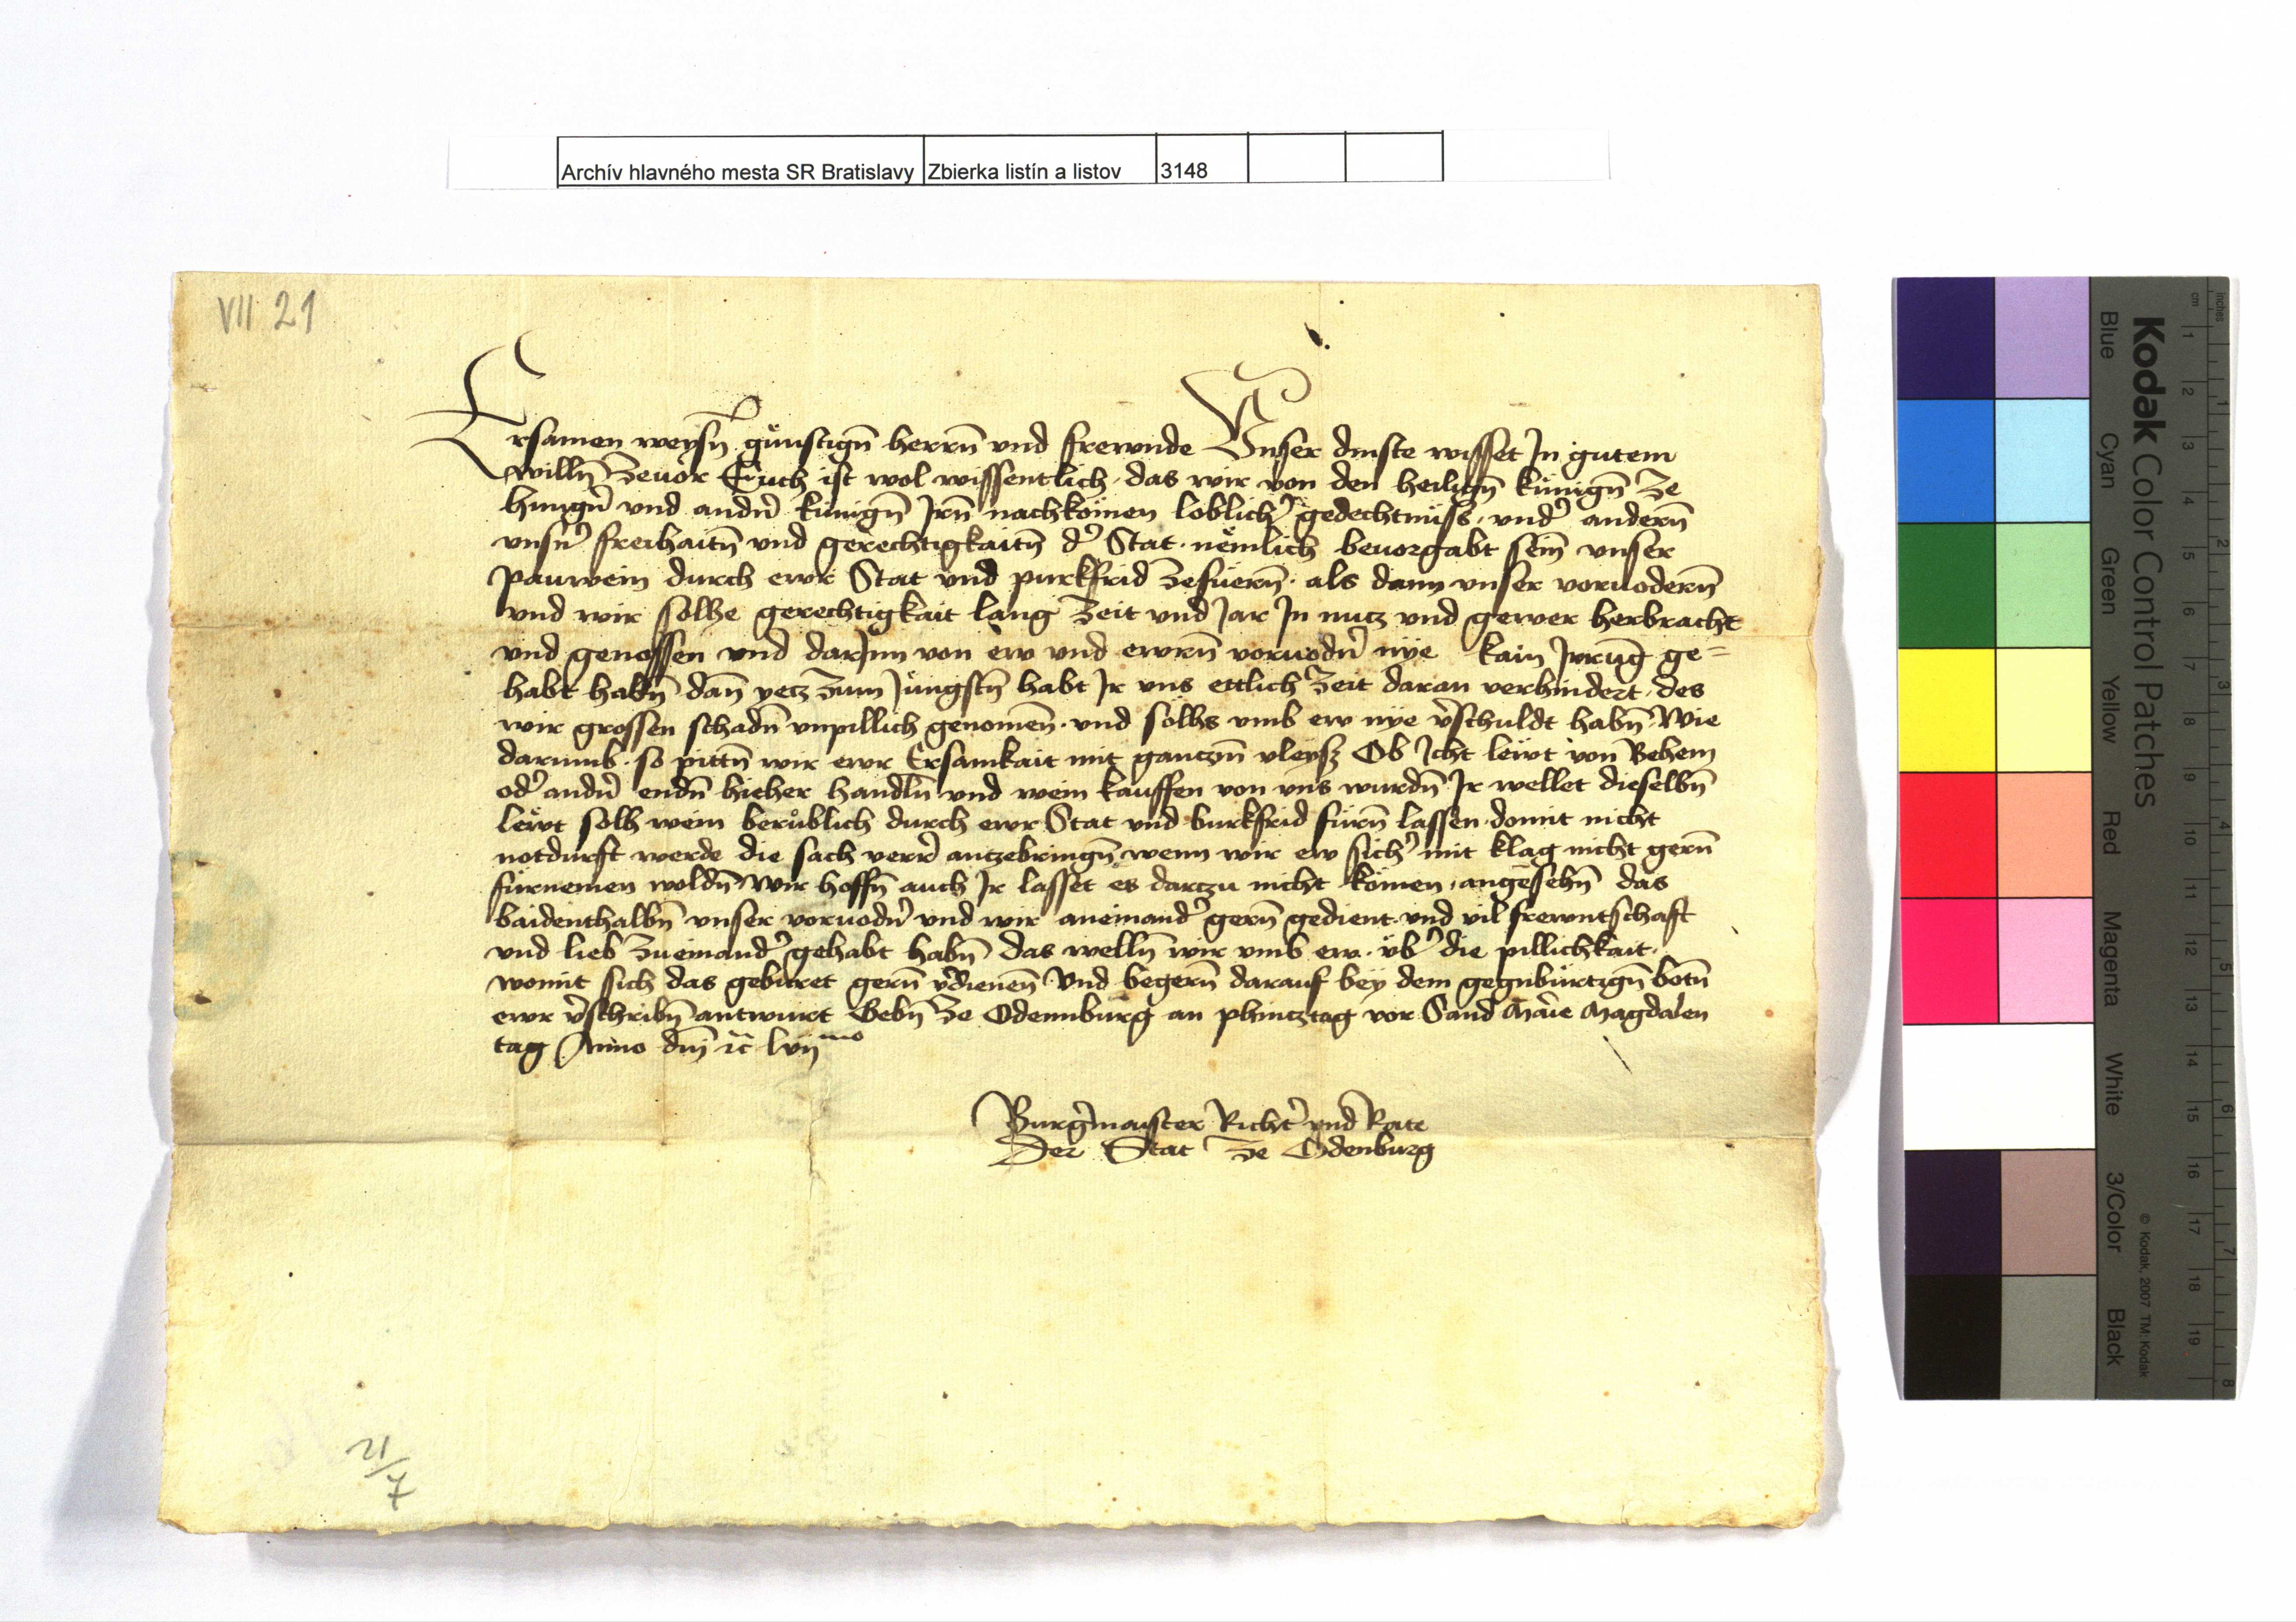 Archív hlavného mesta SR Bratislavy Zbierka listín a listov 3148
VII 21
Ersamen weysn̄ gu̎nstign̄ herrn̄ vnd frewnde Vnser dinste wisset In gutem
willn̄ Zeuor Euch ist wol wissentlich das wir von den heilign̄ ku̎nign̄ ze
hungr̄n vnd andr̄n kunign̄ Irn̄ nachkömen loblicher gedechtnüss, vnder andern̄
vnsrer freihaitn̄ vnd gerechtigkaitn̄ der Stat nemlich beuorgabt sein̄ vnser
pauwein durch ewr Stat vnd purkfrid zefüern̄ als dann vnser voruodern̄
vnd wir solhe gerechtigkait lang Zeit vnd Jar In nucz vnd gewer herbracht
vnd genossen vnd darInn von ew vnd ewrn̄ voruodrn̄ nye kain Irrūg ge=
habt habn̄ dan̄ yecz Zum Jüngstn̄ habt Ir vns ettlich Zeit daran verhindert des
wir grossen schadn̄ vnpillich genomen̄ vnd solhs vmb ew nye verschuldt habn̄ Wie
darumb so pittn̄ wir ewr Ersamkait mit ganczm̄ vleysz Ob Icht lewt von Behem
oder andrn̄ endn̄ hieher handln̄ vnd wein kauffen von vns wurdn̄ Ir wellet dieselbn̄
lewt solh wein berüblich durch ewr Stat vnd burkfrid fürn̄ lassen domit nicht
notdurft werde die sach verrer anczebringn̄ wenn wir ew sicher mit klag nicht gern̄
fürnemen woldn̄ Wir hoffn̄ auch Ir lasset es darczu nicht kömen, angesehn̄ das
baidenthalbn̄ vnser voruodrn̄ vnd wir aneinander gern̄ gedient vnd vil frewntschaft
vnd lieb zueinander gehabt habn̄ das welln̄ wir vmb ew vber die pillichkait
womit sich das gebüret gern̄ verdienen̄ Vnd begern̄ darauf bey dem gegnbürtign̄ botn̄
ewr verschribn̄ antwurt Gebn̄ Ze Odennbürg an phincztag vor Sand Marie Magdalen
tag Anno dnj̄ ꝛc̄ lvij mo
Burgermaister Richter vnd Rate
Der Stat ze Odenburg
Kodak Color Control Patches
Blue Cyan Green Yellow Red Magenta White 3/Color Black
© Kodak, 2007 TM: Kodak
inches 1 2 3 4 5 6 7 8
cm 1 2 3 4 5 6 7 8 9 10 11 12 13 14 15 16 17 18 19